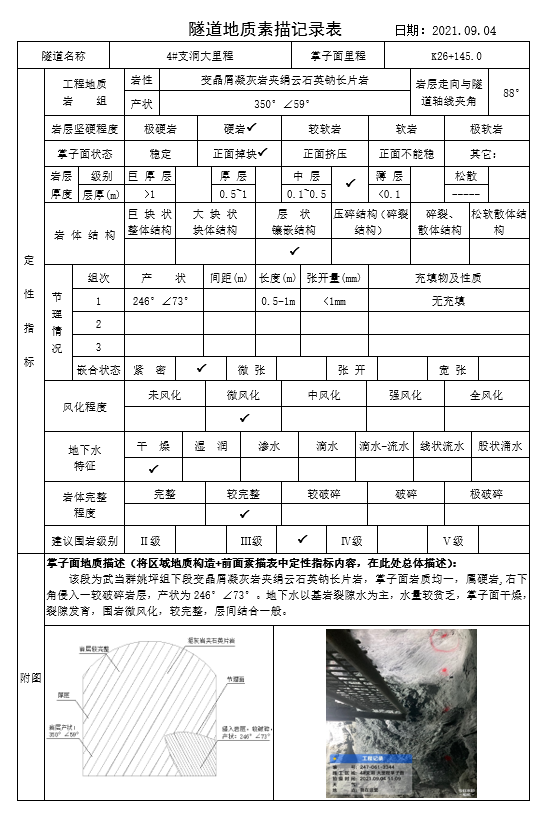 隧道地质素描记录表 日期：2021.09.04
隧道名称 4#支洞大里程 掌子面里程 K26+145.0
工程地质岩组 岩性 变晶屑凝灰岩夹绢云石英钠长片岩 岩层走向与隧道轴线夹角 88°
产状 350°∠59°
岩层坚硬程度 极硬岩 硬岩✓ 较软岩 软岩 极软岩
掌子面状态 稳定 正面掉块✓ 正面挤压 正面不能稳 其它：
岩层厚度 级别 巨厚层 厚层 中层 ✓ 薄层 松散
层厚(m) >1 0.5~1 0.1~0.5 <0.1 -----
岩体结构 巨块状整体结构 大块状块体结构 层状镶嵌结构 压碎结构（碎裂结构） 碎裂、散体结构 松软散体结构
✓
定性指标
节理情况 组次 产状 间距(m) 长度(m) 张开量(mm) 充填物及性质
1 246°∠73° 0.5-1m <1mm 无充填
2
3
嵌合状态 紧密 ✓ 微张 张开 宽张
风化程度 未风化 微风化 中风化 强风化 全风化
✓
地下水特征 干燥 湿润 渗水 滴水 滴水-流水 线状流水 股状涌水
✓
岩体完整程度 完整 较完整 较破碎 破碎 极破碎
✓
建议围岩级别 Ⅱ级 Ⅲ级 ✓ Ⅳ级 Ⅴ级
掌子面地质描述（将区域地质构造+前面素描表中定性指标内容，在此处总体描述）：
该段为武当群姚坪组下段变晶屑凝灰岩夹绢云石英钠长片岩，掌子面岩质均一，属硬岩,右下
角侵入一较破碎岩层，产状为246°∠73°。地下水以基岩裂隙水为主，水量较贫乏，掌子面干燥，
裂隙发育，围岩微风化，较完整，层间结合一般。
附图
岩层较完整
凝灰岩夹石英片岩
节理面
薄层
岩层产状：
350°∠59°
侵入岩层，较破碎，
产状：246°∠73°
工程记录
247-061-3344
2021.09.04